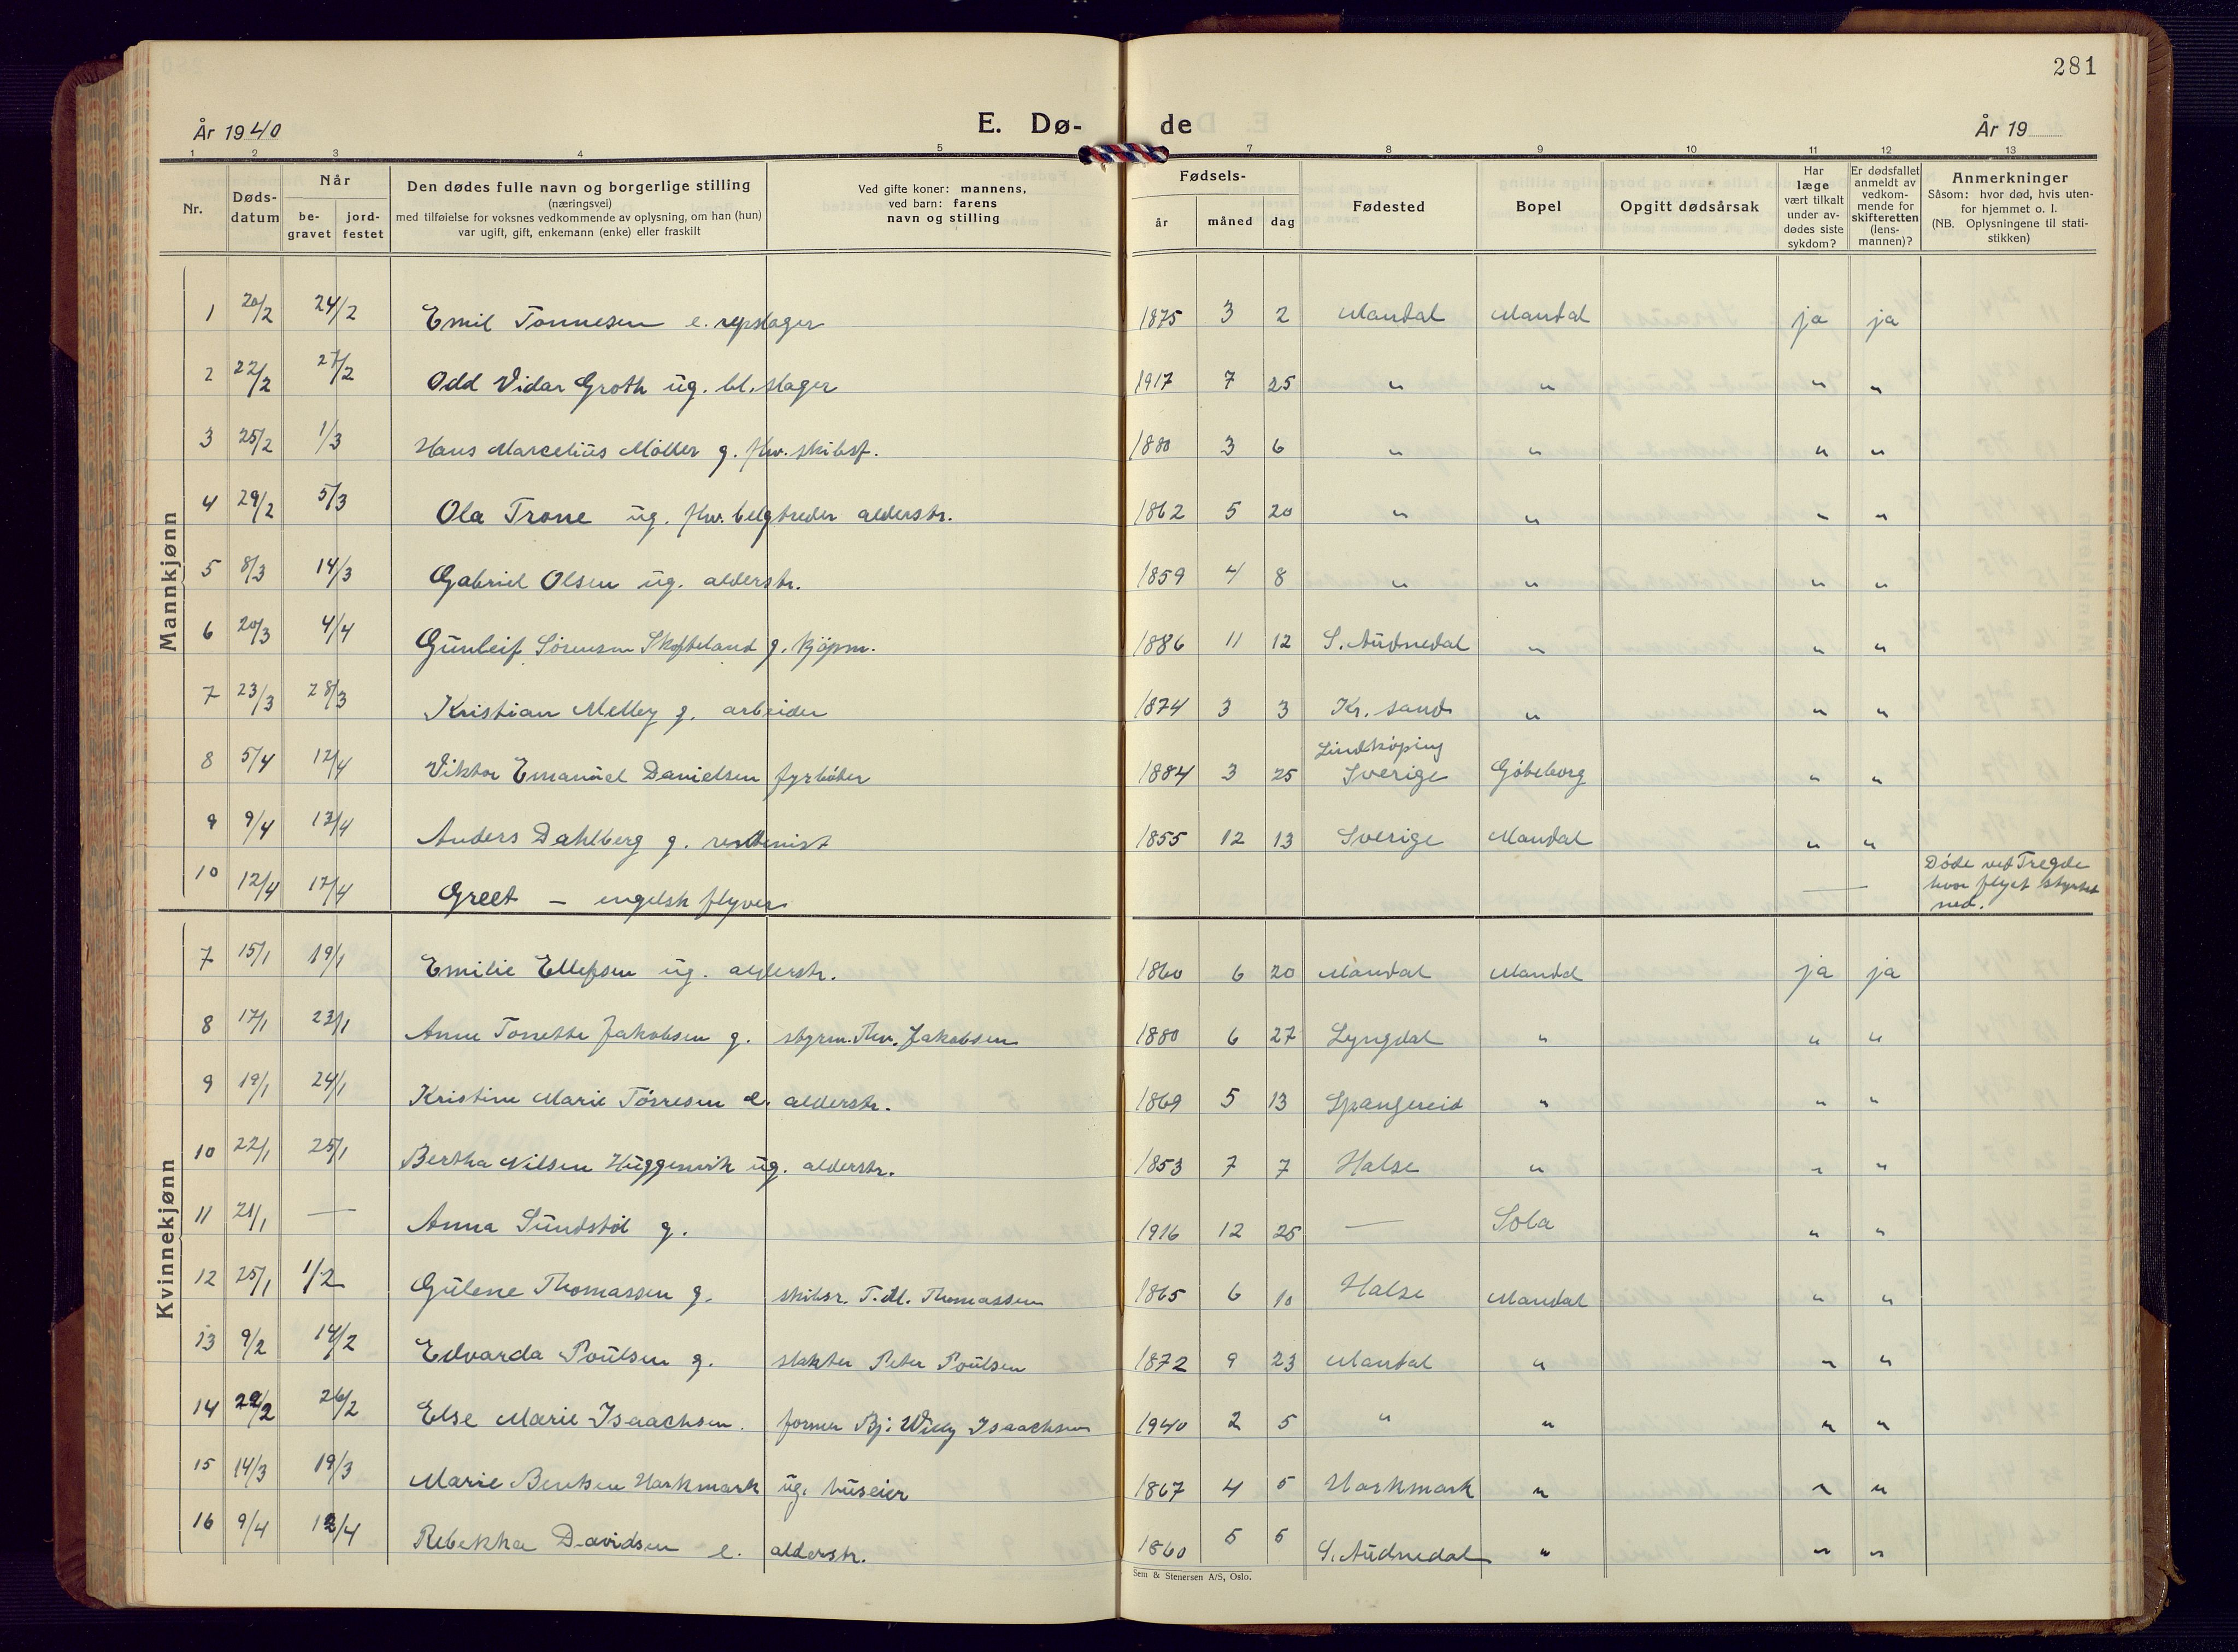 281
År 1940
E. Dø-
de
År 19
1 2 3 4 5 7 8 9 10 11 12 13
Nr.
Døds-
datum
Når
be-
gravet
jord-
festet
Den dødes fulle navn og borgerlige stilling
(næringsvei)
med tilføielse for voksnes vedkommende av oplysning, om han (hun)
var ugift, gift, enkemann (enke) eller fraskilt
Ved gifte koner: mannens,
ved barn: farens
navn og stilling
Fødsels-
år måned dag
Fødested
Bopel
Opgitt dødsårsak
Har
læge
vært tilkalt
under av-
dødes siste
sykdom?
Er dødsfallet
anmeldt av
vedkom-
mende for
skifteretten
(lens-
mannen)?
Anmerkninger
Såsom: hvor død, hvis uten-
for hjemmet o. l.
(NB. Oplysningene til stati-
stikken)
Mannkjønn
1 20/2 24/2 Emil Tønnesen e. repslager 1875 3 2 Mandal Mandal ja ja
2 22/2 27/2 Odd Vidar Groth ug. bl.slager 1917 7 25 " " " "
3 25/2 1/3 Hans Marcelius Møller g. fhv. skibsf. 1880 3 6 " " " "
4 29/2 5/3 Ola Trone ug. fhv. belgtreder alderstr. 1862 5 20 " " " "
5 8/3 14/3 Gabriel Olsen ug. alderstr. 1859 4 8 " " " "
6 20/3 4/4 Gunleif Sørensen Skofteland g. kjøpm. 1886 11 12 S. Audnedal " " "
7 23/3 28/3 Kristian Melby g. arbeider 1874 3 3 Kr. sand " " "
8 5/4 12/4 Viktor Emanuel Danielsen fyrbøter 1884 3 25 Lindkøping Sverige Gøteborg " "
9 9/4 13/4 Anders Dahlberg g. rentenist 1855 12 13 Sverige Mandal " "
10 12/4 17/4 Greet — engelsk flyver — Døde ved Tregde
hvor flyet styrtet
ned.
Kvinnekjønn
7 15/1 19/1 Emilie Ellefsen ug. alderstr. 1860 6 20 Mandal Mandal ja ja
8 17/1 23/1 Anne Tonette Jakobsen g. styrm. Thv. Jakobsen 1880 6 27 Lyngdal " " "
9 19/1 24/1 Kristine Marie Tørresen e. alderstr. 1869 5 13 Spangereid " " "
10 22/1 25/1 Bertha Nilsen Huggenvik ug. alderstr. 1853 7 7 Halse " " "
11 21/1 — Anna Sundstøl g. 1916 12 25 — Sola " "
12 25/1 1/2 Gulene Thomassen g. skibsr. T. M. Thomassen 1865 6 10 Halse Mandal " "
13 9/2 14/2 Edvarda Poulsen g. slakter Peter Poulsen 1872 9 23 Mandal " " "
14 22/2 26/2 Else Marie Isaachsen. former Bj: Willy Isaachsen 1940 2 5 " " " "
15 14/3 19/3 Marie Bentsen Harkmark ug. huseier 1867 4 5 Harkmark " " "
16 9/4 12/4 Rebekka Davidsen e. alderstr. 1860 5 5 S. Audnedal " " "
Sem & Stenersen A/S, Oslo.